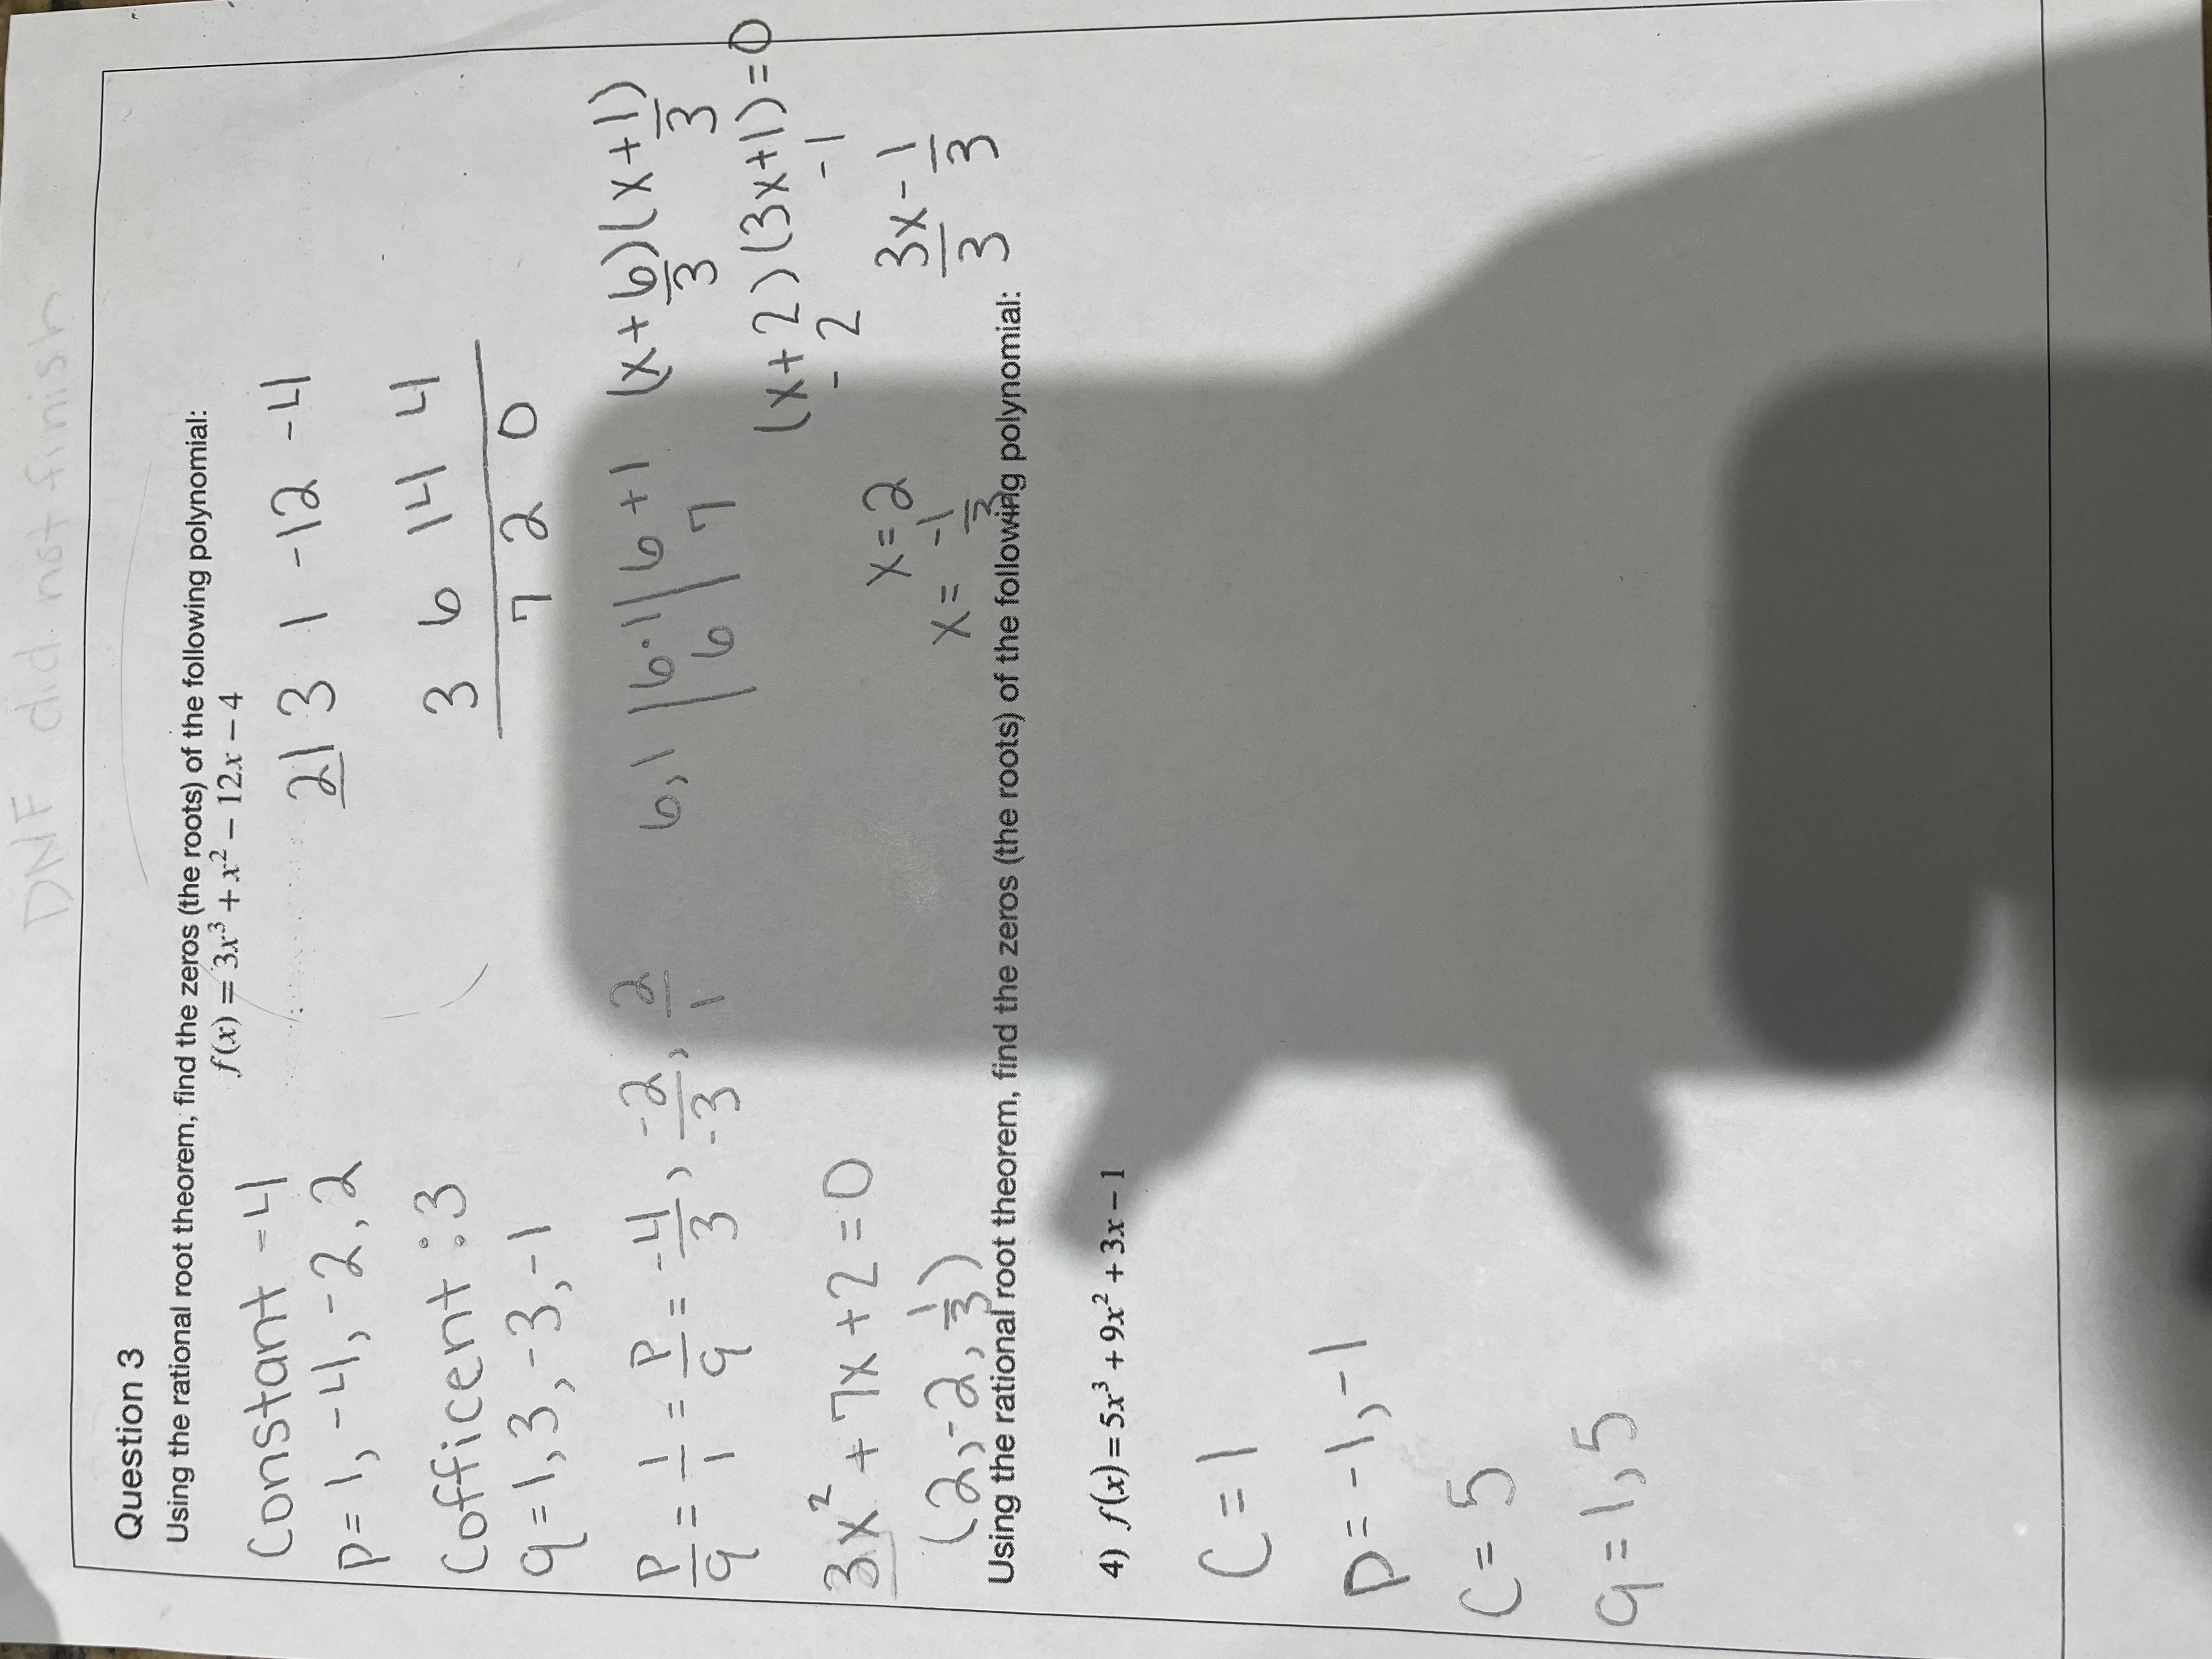 DNF did not finish
Question 3
Using the rational root theorem, find the zeros (the roots) of the following polynomial:
f(x) = 3x³ + x² − 12x − 4
Constant -4
P= 1, -4, -2, 2
Cofficent : 3
q = 1, 3, -3, -1
2| 3 1 -12 -4
6 14 4
3 7 2 0
p/q = 1/1 = p/q = -4/3, -2/-3, 2/1
6, 1 |6·1| 6+1
|6| 7
(x + 6/3)(x + 1/3)
(x+2)(3x+1)=0
-2 -1
3x/3 -1/3
3x² + 7x + 2 = 0
(2, -2, 1/3)
x = 2
x = -1/3
Using the rational root theorem, find the zeros (the roots) of the following polynomial:
4) f(x) = 5x³ + 9x² + 3x − 1
C = 1
P = -1, -1
C = 5
q = 1, 5